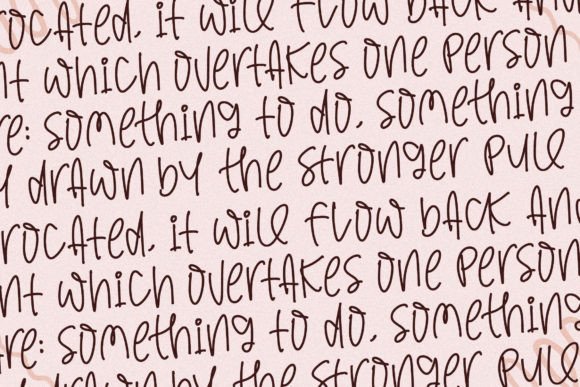 rocated, it will flow back and
nt which overtakes one person
re: something to do, something
y drawn by the stronger pull
rocated, it will flow back and
nt which overtakes one person
re: something to do, something
y drawn by the stronger pull